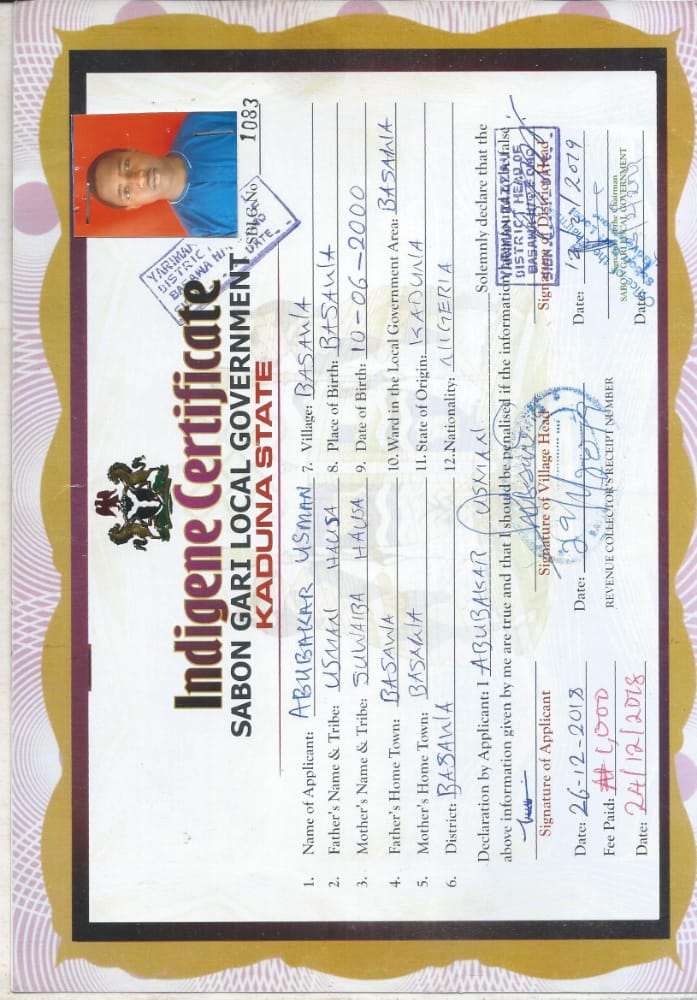 Indigene Certificate
SABON GARI LOCAL GOVERNMENT
KADUNA STATE
SSBLG.No 1083
1. Name of Applicant: ABUBAKAR USMAN
2. Father's Name & Tribe: USMAN HAUSA
3. Mother's Name & Tribe: SUWAIBA HAUSA
4. Father's Home Town: BASAWA
5. Mother's Home Town: BASAWA
6. District: BASAWA
7. Village: BASAWA
8. Place of Birth: BASAWA
9. Date of Birth: 10-06-2000
10. Ward in the Local Government Area: BASAWA
11. State of Origin: KADUNA
12. Nationality: NIGERIA
Declaration by Applicant: I ABUBAKAR USMAN Solemnly declare that the
above information given by me are true and that I should be penalised if the information is false
Signature of Applicant
Signature of Village Head
Signature of District Head
Date: 26-12-2018
Date:
Date: 2019
Fee Paid: ₦ 1,000
REVENUE COLLECTOR'S RECEIPT NUMBER
Signature of the Chairman
SABON GARI LOCAL GOVERNMENT
Date: 24/12/2018
Date:
YARIMAN
DISTRICT HEAD OF
BASAWA
SIGN DATE